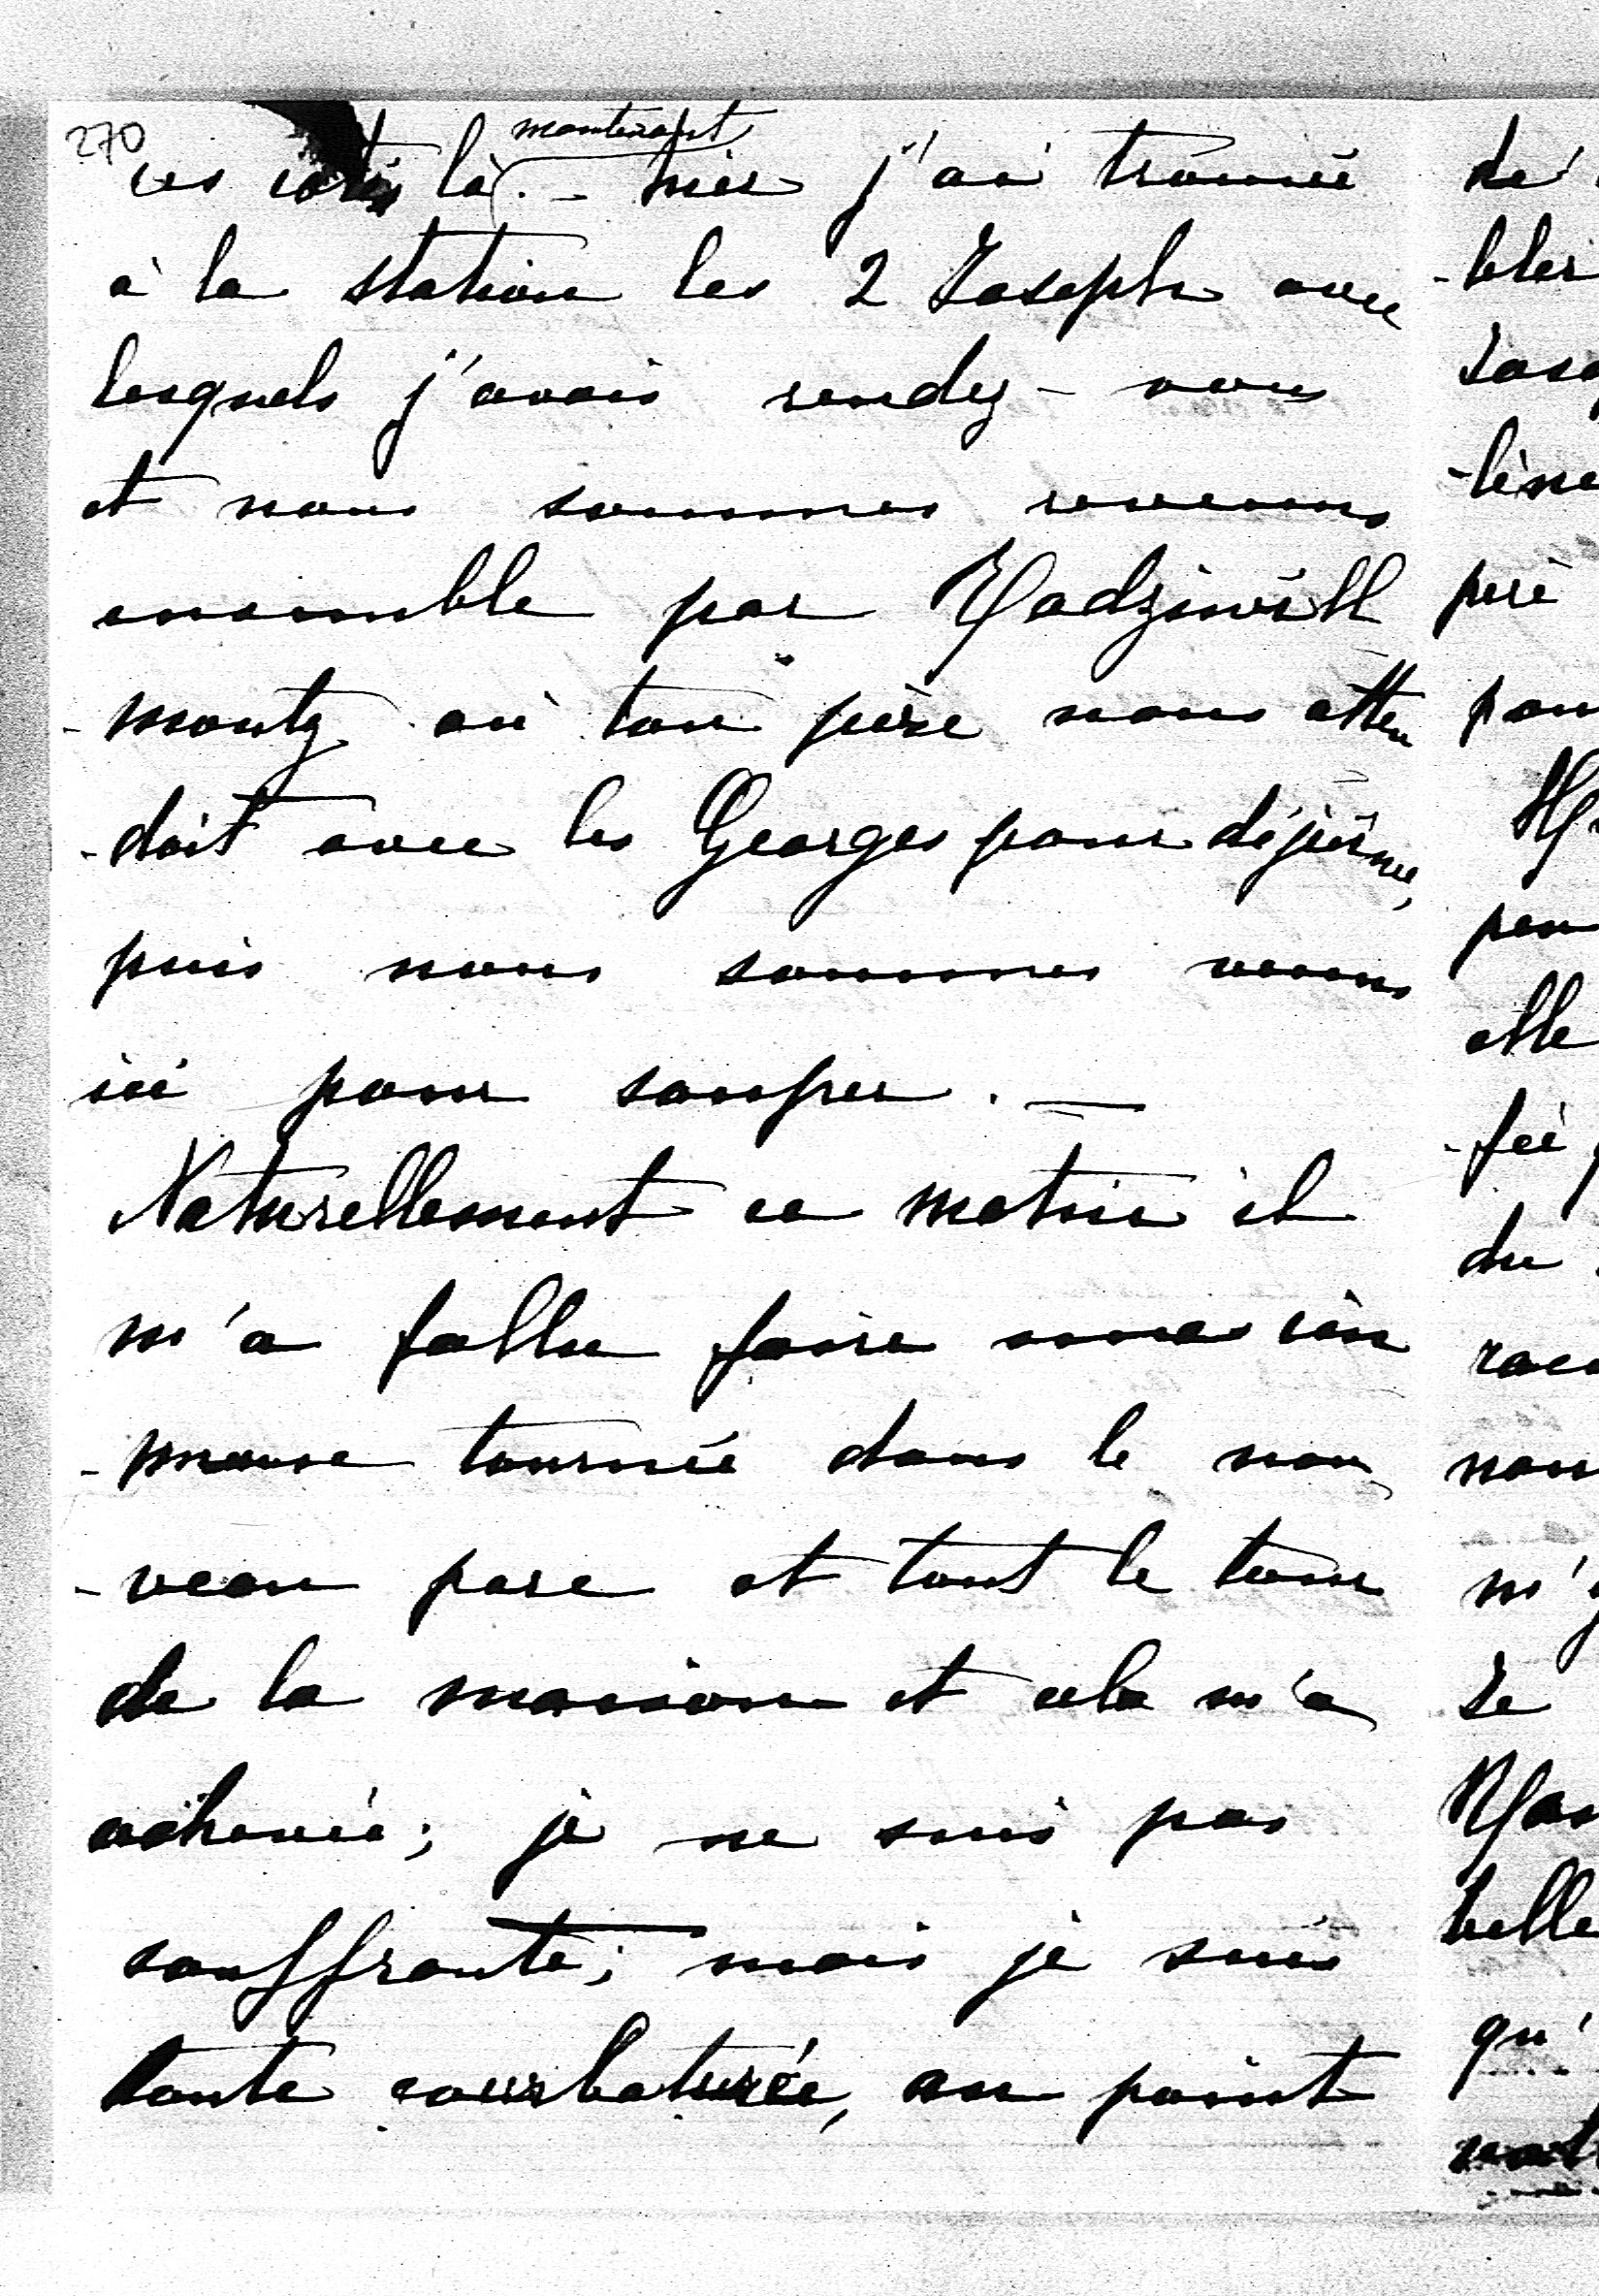 270
maintenant
ces côtés là. - hier j'ai trouvé
à la station les 2 Joseph avec
lesquels j'avais rendez-vous
et nous sommes revenus
ensemble par Radziwill
-montz où ton père nous atten
-dait avec les Georges pour déjeûner,
puis nous sommes venus
ici pour souper. —
Naturellement ce matin il
m'a fallu faire une im
-mense tournée dans le nou
-veau parc et tout le tour
de la maison et cela m'a
achevée; je ne suis pas
souffrante; mais je suis
toute courbaturée, au point
de
-bler
Jose
-lène
père
pour
peu
elle
-fée
du
rac
nous
m'y
Je
belle
qu'